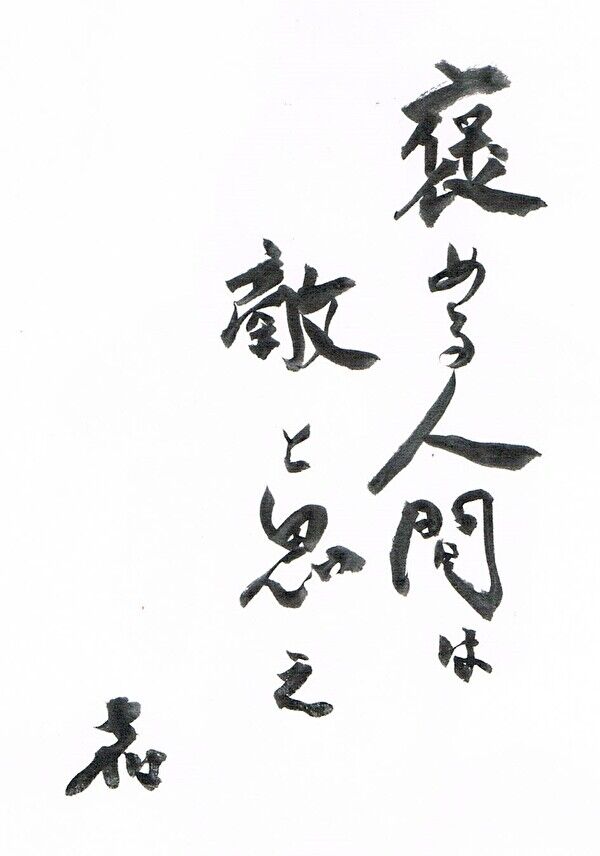 褒める人間は
敵と思え